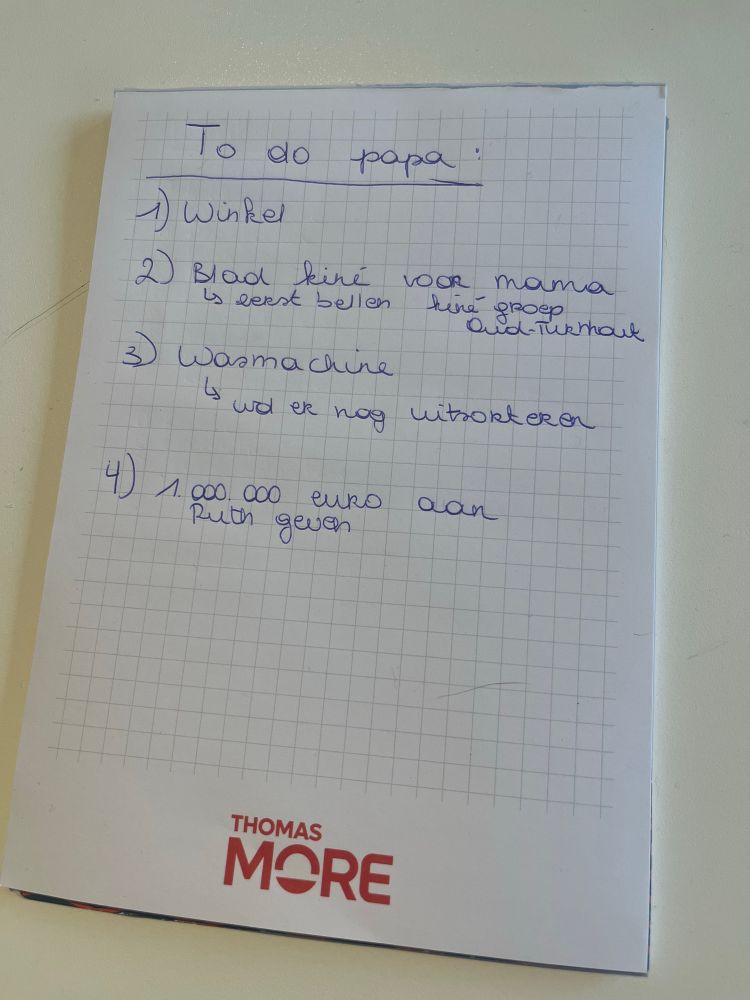 To do papa :
1) Winkel
2) Blad kiné voor mama
↳ eerst bellen kiné groep
Oud-Turnhout
3) Wasmachine
↳ wd er nog uitsorteren
4) 1.000.000 euro aan
Ruth geven
THOMAS
MORE